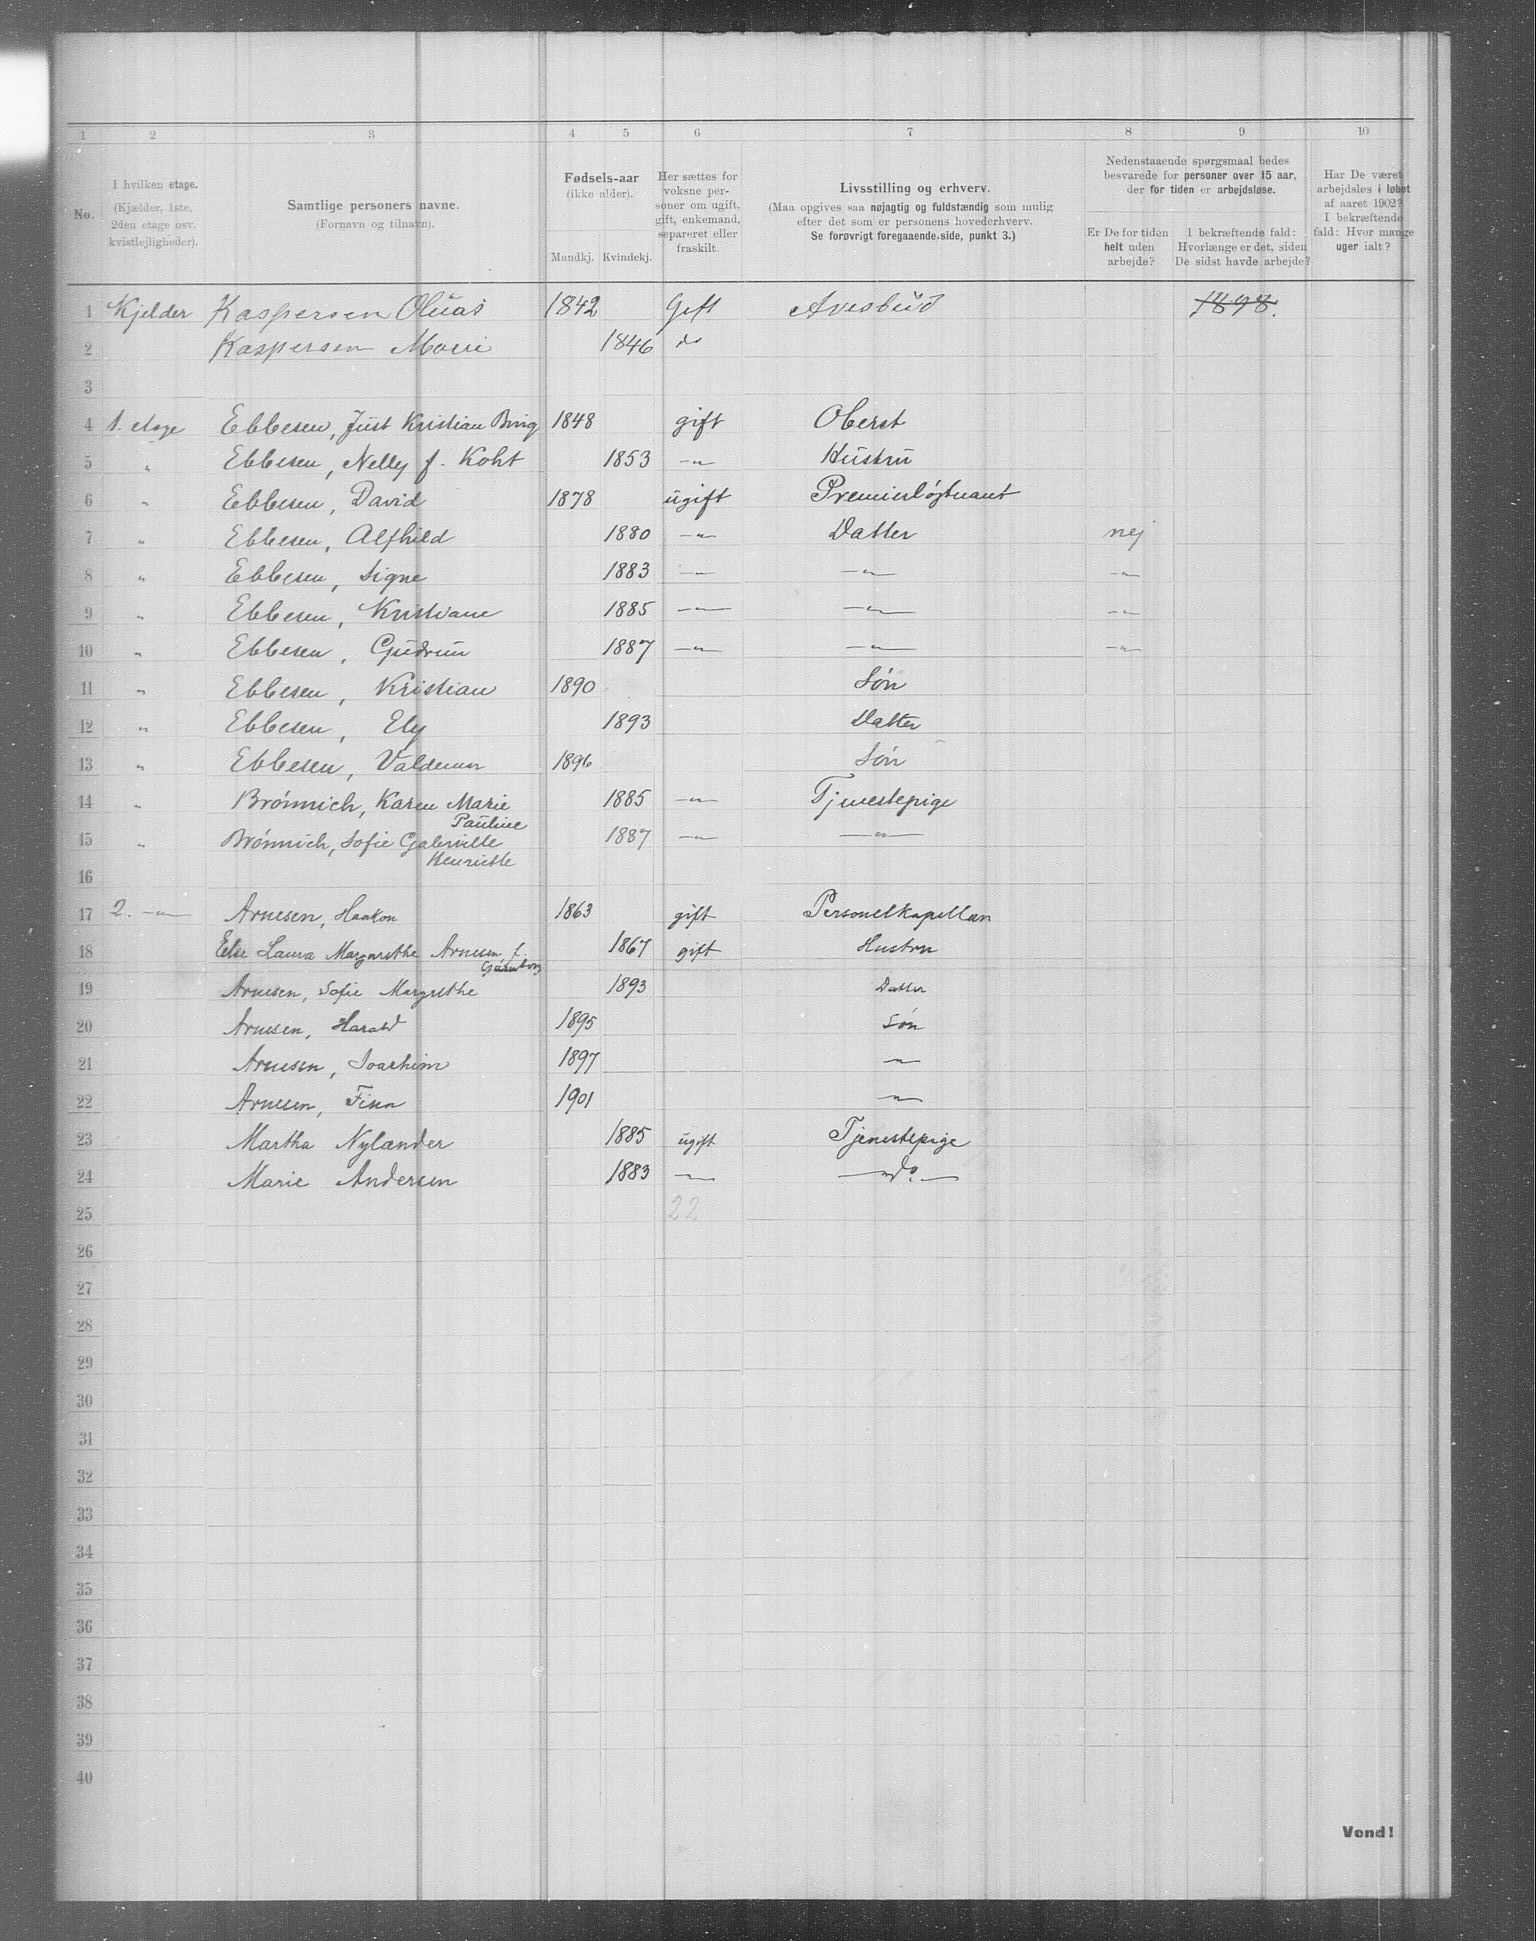 1 2 3 4 5 6 7 8 9 10
No.
I hvilken etage.
(Kjælder, 1ste, 2den etage osv. kvistlejligheder).
Samtlige personers navne.
(Fornavn og tilnavn).
Fødsels-aar
(ikke alder).
Mandkj. Kvindekj.
Her sættes for voksne personer om ugift, gift, enkemand, separeret eller fraskilt.
Livsstilling og erhverv.
(Maa opgives saa nøjagtig og fuldstændig som mulig efter det som er personens hovederhverv.
Se forøvrigt foregaaende side, punkt 3.)
Nedenstaaende spørgsmaal bedes besvarede for personer over 15 aar, der for tiden er arbejdsløse.
Er De for tiden helt uden arbejde?
I bekræftende fald: Hvorlænge er det, siden De sidst havde arbejde?
Har De været arbejdsløs i løbet af aaret 1902? I bekræftende fald: Hvor mange uger ialt?
1 Kjelder Kaspersen Oluas 1842 Gift Avisbud 1898.
2 Kaspersen Marie 1846 do
3
4 1. etage Ebbesen, Just Kristian Bing 1848 gift Oberst
5 " Ebbesen, Nelly f. Koht 1853 —"— Hustru
6 " Ebbesen, David 1878 ugift Premierløjtnant
7 " Ebbesen, Alfhild 1880 —"— Datter nej
8 " Ebbesen, Signe 1883 —"— —"— —"—
9 " Ebbesen, Kristiane 1885 —"— —"— —"—
10 " Ebbesen, Gudrun 1887 —"— —"— —"—
11 " Ebbesen, Kristian 1890 Søn
12 " Ebbesen, Ely 1893 Datter
13 " Ebbesen, Valdemar 1896 Søn
14 " Brønnich, Karen Marie Pauline 1885 —"— Tjenestepige
15 " Brønnich, Sofie Gabrielle Henriette 1887 —"— —"—
16
17 2. —"— Arnesen, Haakon 1863 gift Personelkapellan
18 Else Laura Margarethe Arnesen, f. 1867 gift Hustru
19 Arnesen, Sofie Margrethe 1893 Datter
20 Arnesen, Harald 1895 Søn
21 Arnesen, Joachim 1897 —"—
22 Arnesen, Finn 1901 —"—
23 Martha Nylander 1885 ugift Tjenestepige
24 Marie Andersen 1883 —"— —do.—
25 22
26
27
28
29
30
31
32
33
34
35
36
37
38
39
40
Vend!